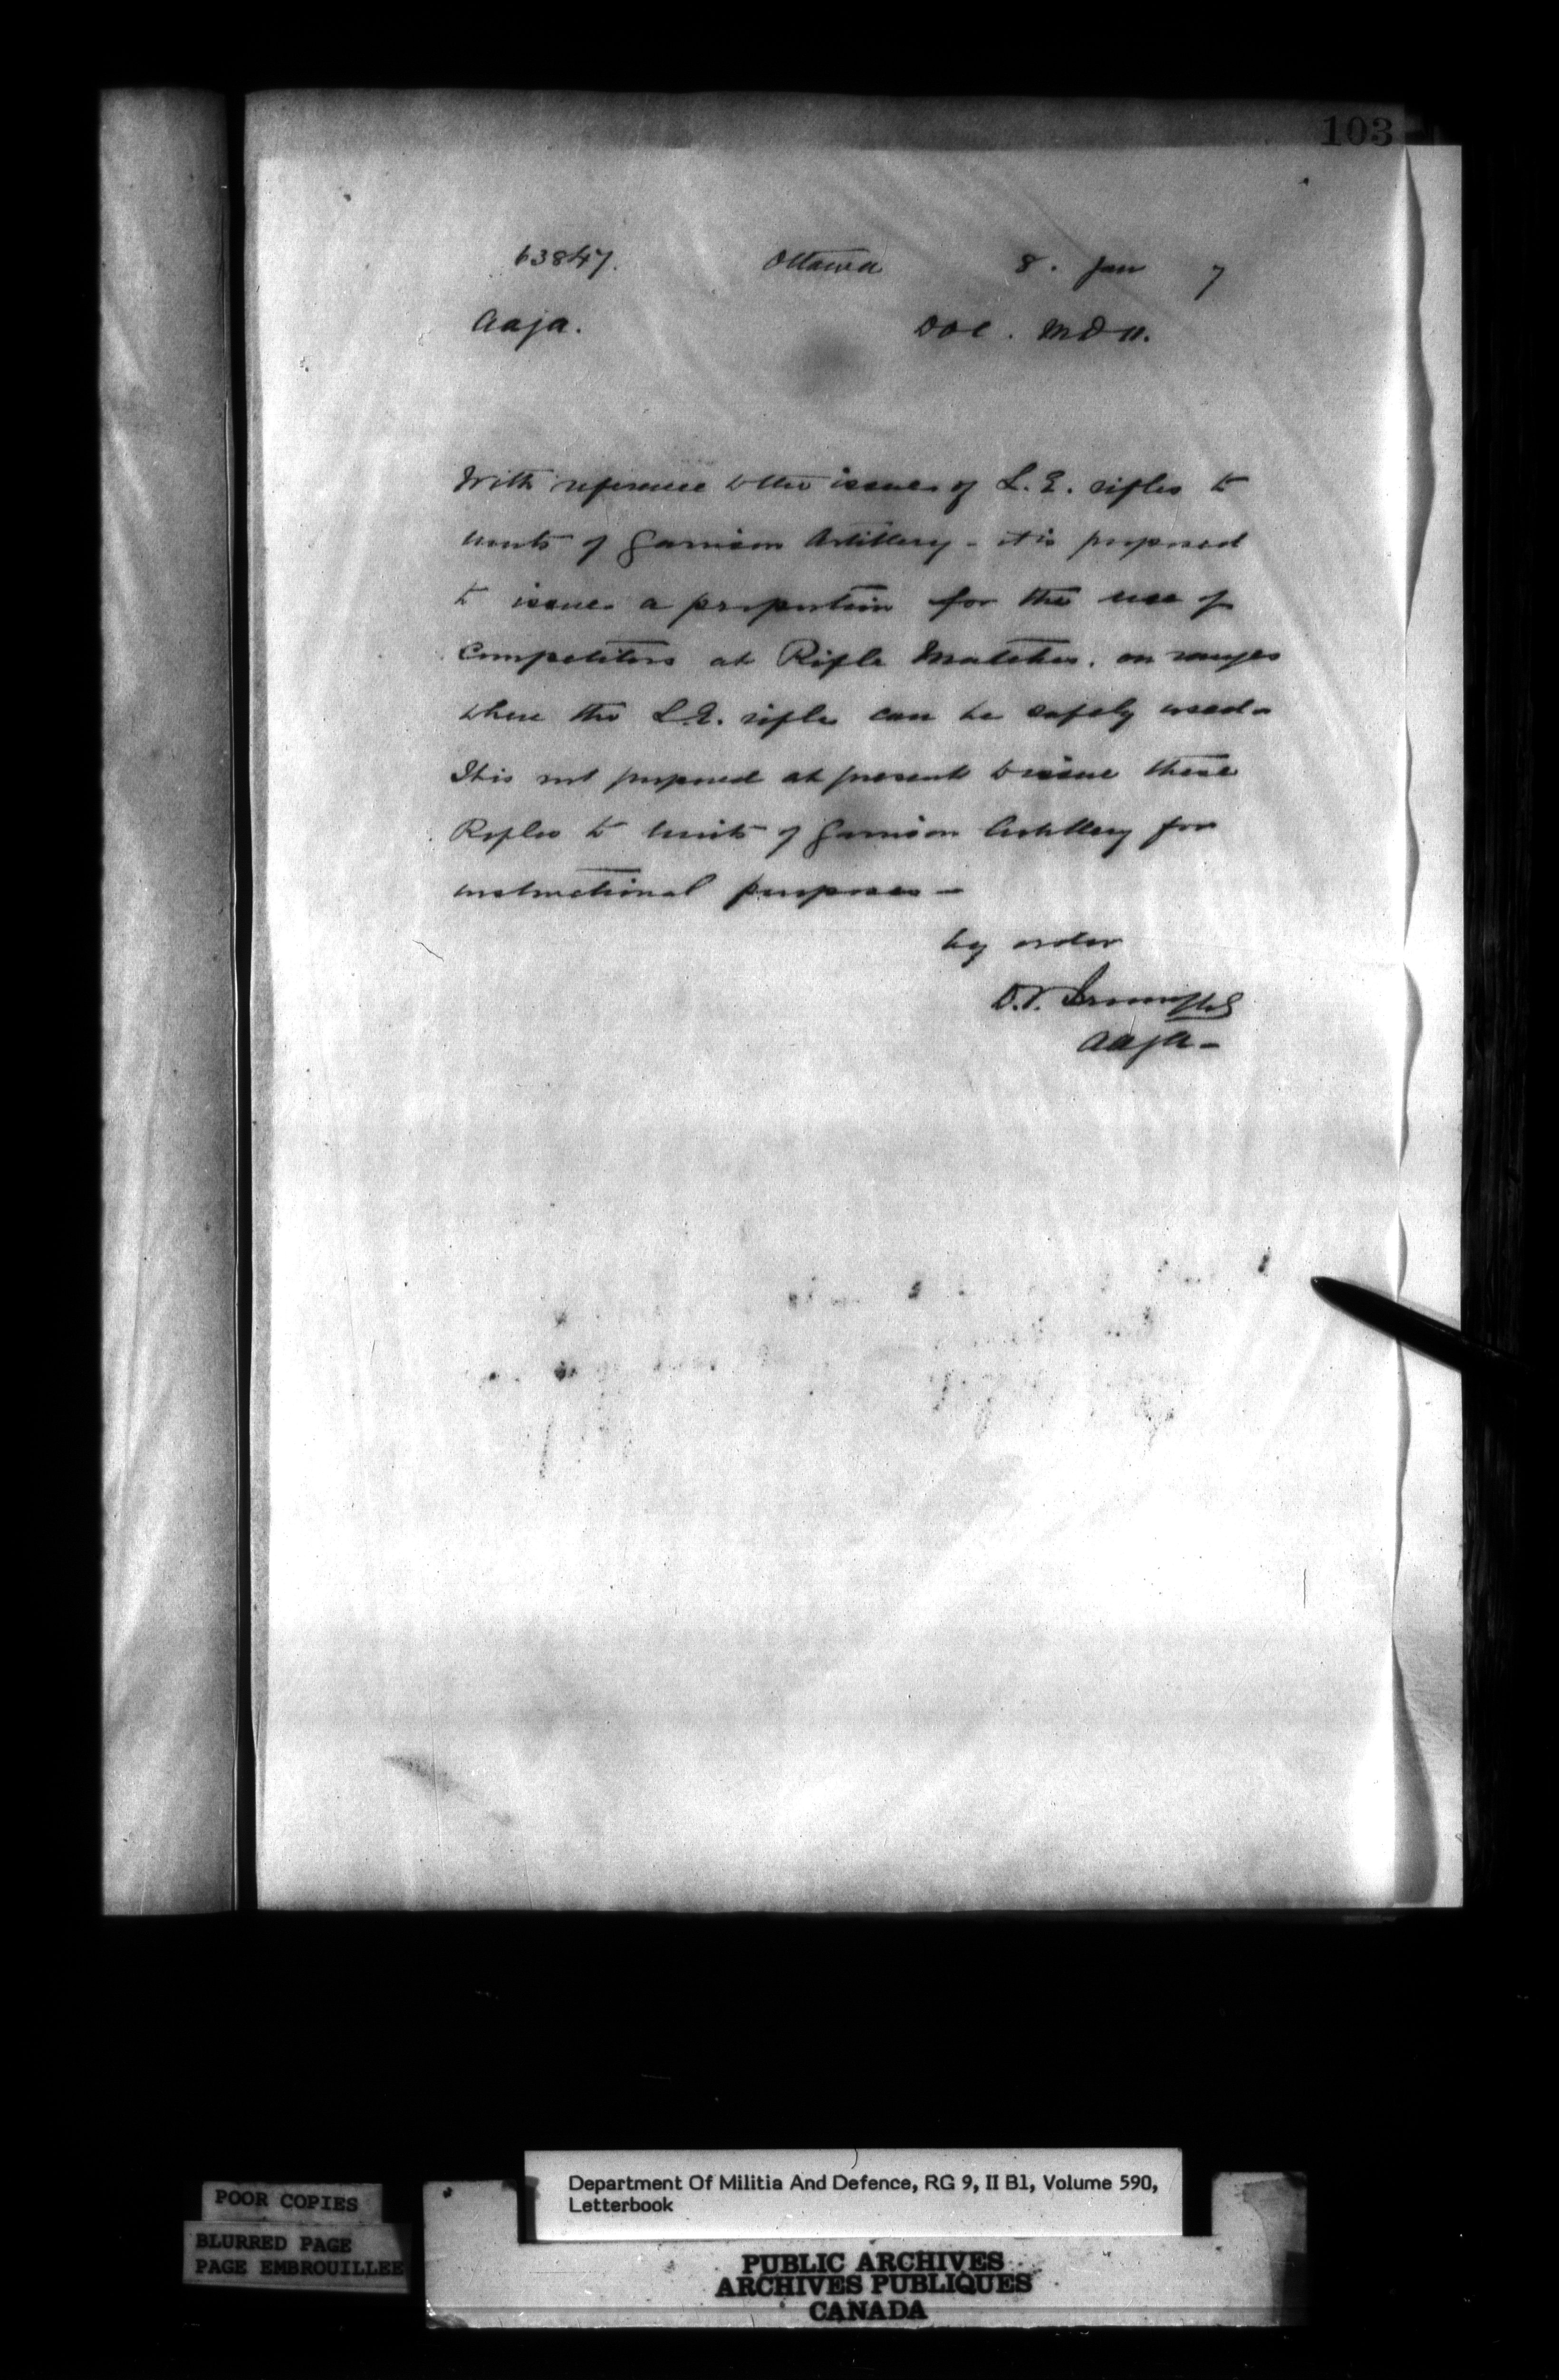 103
63847. Ottawa 8. Jan 7
Aaja. DOC. MD 11.
With reference to the issue of L.E. rifles to
units of Garrison Artillery - it is proposed
to issue a proportion for the use of
Competitors at Rifle Matches. on ranges
where the L.E. rifle can be safely used -
It is not proposed at present to issue these
Rifles to units of Garrison Artillery for
instructional purposes -
by order
D.T.
aaja -
Department Of Militia And Defence, RG 9, II B1, Volume 590,
Letterbook
POOR COPIES
BLURRED PAGE
PAGE EMBROUILLEE
PUBLIC ARCHIVES
ARCHIVES PUBLIQUES
CANADA